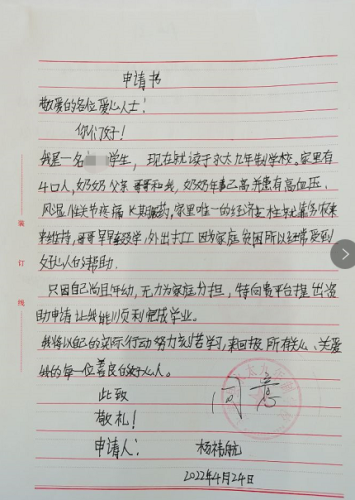 申请书
敬爱的各位爱心人士：
你们好！
我是一名 学生，现在就读于 太九年制学校。家里有
4口人，奶奶 父亲 哥哥和我，奶奶年事已高并患有高血压、
风湿性关节疼痛 长期服药，家里唯一的经济支柱就靠爷 来
来维持，哥哥早早辍学，外出打工 因为家庭贫困所以经常受到
好心人的帮助.
只因自己尚且年幼，无力为家庭分担，特向贵平台提出资
助申请 让我能顺利完成学业。
我将以自己的实际行动努力刻苦学习，来回报 所有关心、关爱
我的每一位善良的好心人。
此致
敬礼！
同意
申请人： 杨 航
2022年4月24日
装
订
线